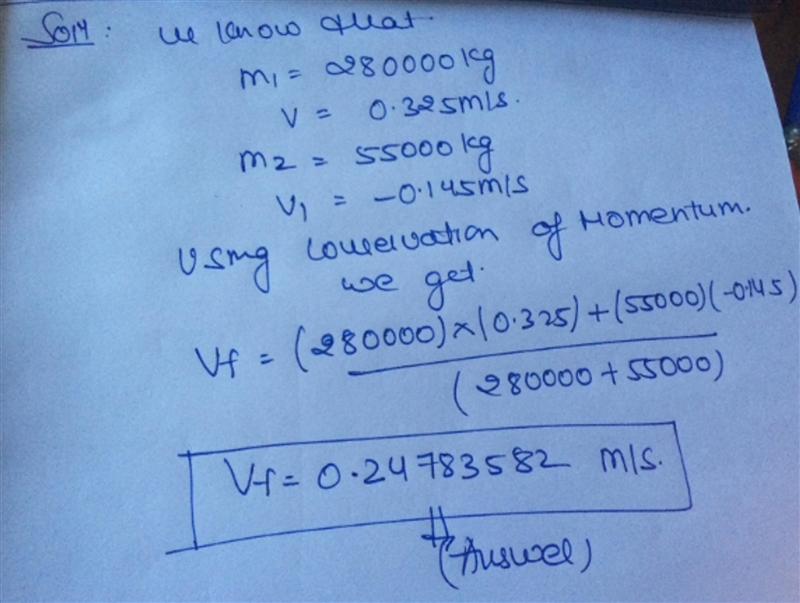 Soln: we know that.
m1 = 280000 kg
v = 0.325 m/s.
m2 = 55000 kg
v1 = -0.145 m/s
Using conservation of Momentum.
we get.
Vf = (280000)×(0.325)+(55000)(-0.145)
(280000+55000)
Vf = 0.24783582 m/s.
(Answer)